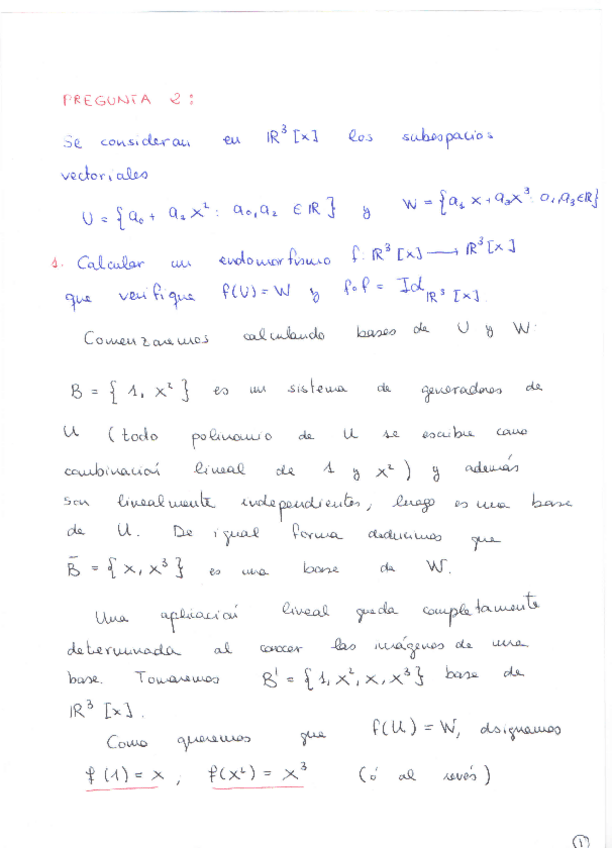 PREGUNTA 2:
Se consideran en ℝ³[x] los subespacios
vectoriales
U = {a₀ + a₂x² : a₀, a₂ ∈ ℝ} y W = {a₁x + a₃x³ : a₁, a₃ ∈ ℝ}
1. Calcular un endomorfismo f: ℝ³[x] ⟶ ℝ³[x]
que verifique f(U) = W y f∘f = Id_ℝ³[x]
Comenzaremos calculando bases de U y W:
B = {1, x²} es un sistema de generadores de
U (todo polinomio de U se escribe como
combinación lineal de 1 y x²) y además
son linealmente independientes, luego es una base
de U. De igual forma deducimos que
B̄ = {x, x³} es una base de W.
Una aplicación lineal queda completamente
determinada al conocer las imágenes de una
base. Tomaremos B' = {1, x², x, x³} base de
ℝ³[x].
Como queremos que f(U) = W, dsignamos
f(1) = x, f(x²) = x³ (ó al revés)
1